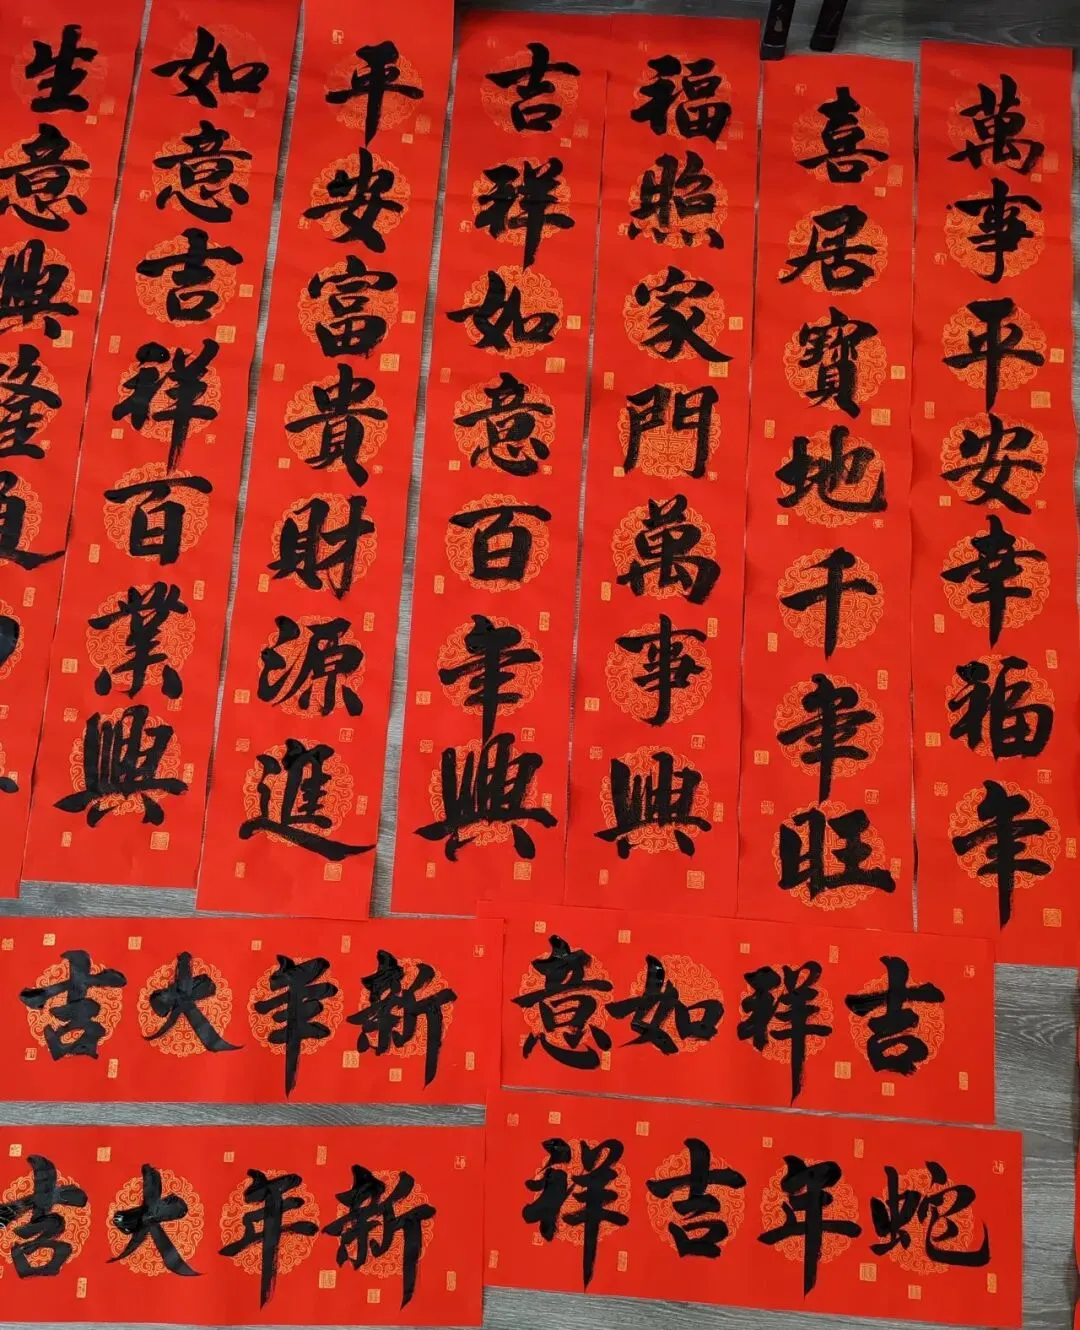 萬事平安幸福年
喜居寶地千年旺
福照家門萬事興
吉祥如意百年興
平安富貴財源進
如意吉祥百業興
生意興隆通
吉祥如意
新年大吉
蛇年吉祥
新年大吉